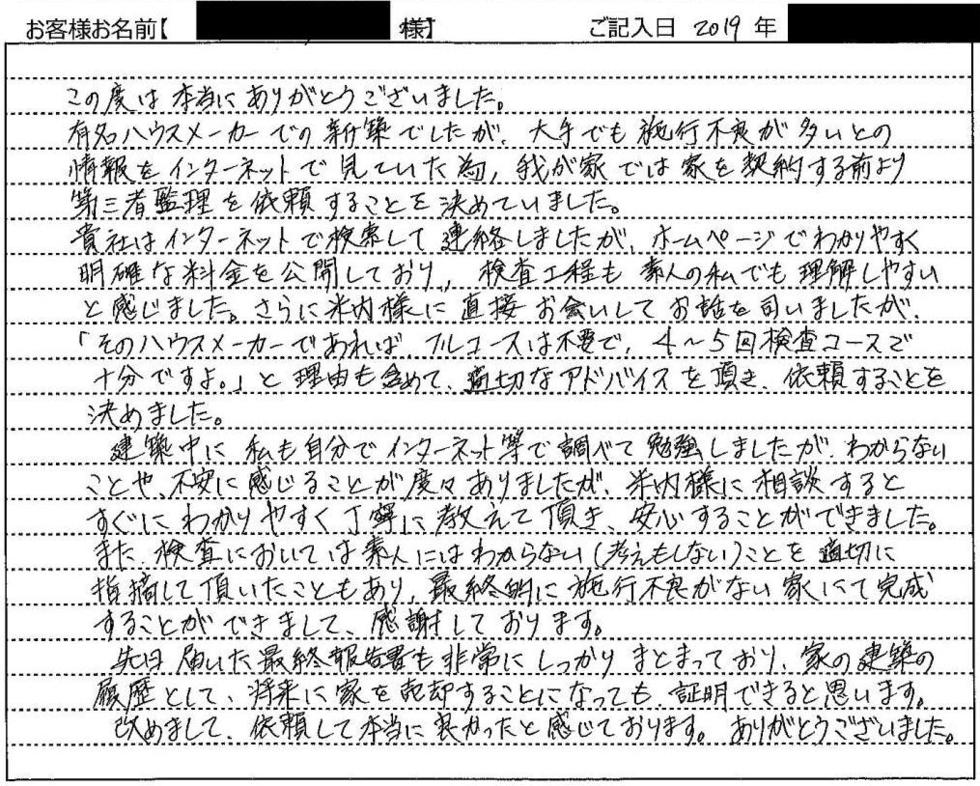 お客様お名前【 様】 ご記入日 2019 年
この度は本当にありがとうございました。
有名ハウスメーカーでの新築でしたが、大手でも施行不良が多いとの
情報をインターネットで見ていた為、我が家では家を契約する前より
第三者監理を依頼することを決めていました。
貴社はインターネットで検索して連絡しましたが、ホームページでわかりやすく
明確な料金を公開しており、検査工程も素人の私でも理解しやすい
と感じました。さらに米内様に直接お会いしてお話を伺いましたが、
「そのハウスメーカーであれば、フルコースは不要で、4～5回検査コースで
十分ですよ。」と理由も含めて、適切なアドバイスを頂き、依頼することを
決めました。
建築中に私も自分でインターネット等で調べて勉強しましたが、わからない
ことや、不安に感じることが度々ありましたが、米内様に相談すると
すぐにわかりやすく丁寧に教えて頂き、安心することができました。
また、検査においては素人にはわからない(考えもしない)ことを適切に
指摘して頂いたこともあり、最終的に施行不良がない家にて完成
することができまして、感謝しております。
先日届いた最終報告書も非常にしっかりまとまっており、家の建築の
履歴として、将来に家を売却することになっても、証明できると思います。
改めまして、依頼して本当に良かったと感じております。ありがとうございました。